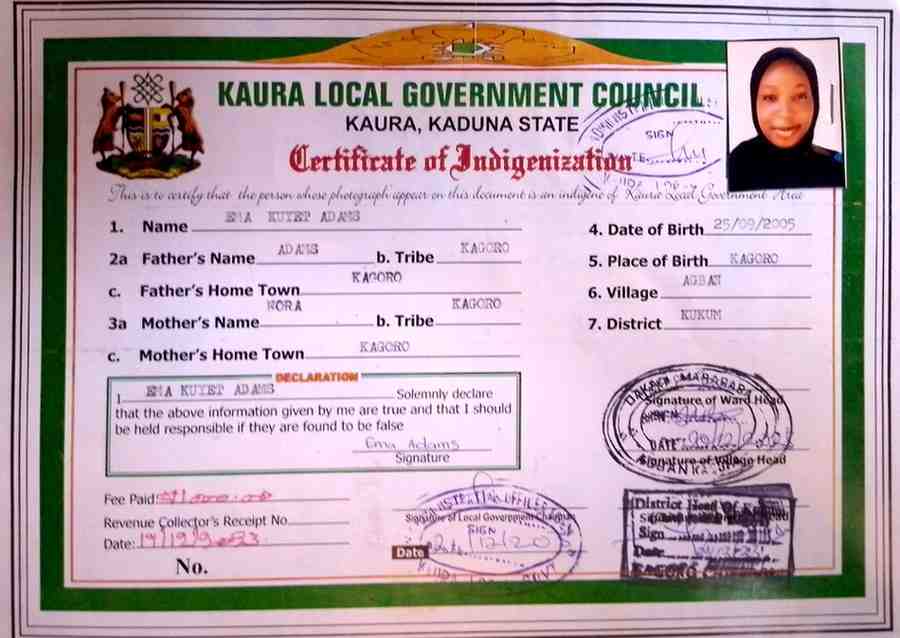 KAURA LOCAL GOVERNMENT COUNCIL
KAURA, KADUNA STATE
Certificate of Indigenization
This is to certify that the person whose photograph appear on this document is an indigene of Kaura Local Government Area
1. Name EMA KUYET ADAMS
2a Father's Name ADAMS b. Tribe KAGORO
c. Father's Home Town KAGORO
3a Mother's Name NORA b. Tribe KAGORO
c. Mother's Home Town KAGORO
4. Date of Birth 25/09/2005
5. Place of Birth KAGORO
6. Village AGBAN
7. District KUKUM
DECLARATION
I EMA KUYET ADAMS Solemnly declare
that the above information given by me are true and that I should
be held responsible if they are found to be false
Ema Adams
Signature
Fee Paid
Revenue Collector's Receipt No
Date:
No.
SIGN
Signature of Local Government Chairman
SIGN
Date
Signature of Ward Head
DATE
Signature of Village Head
District Head Of
Sign
Date